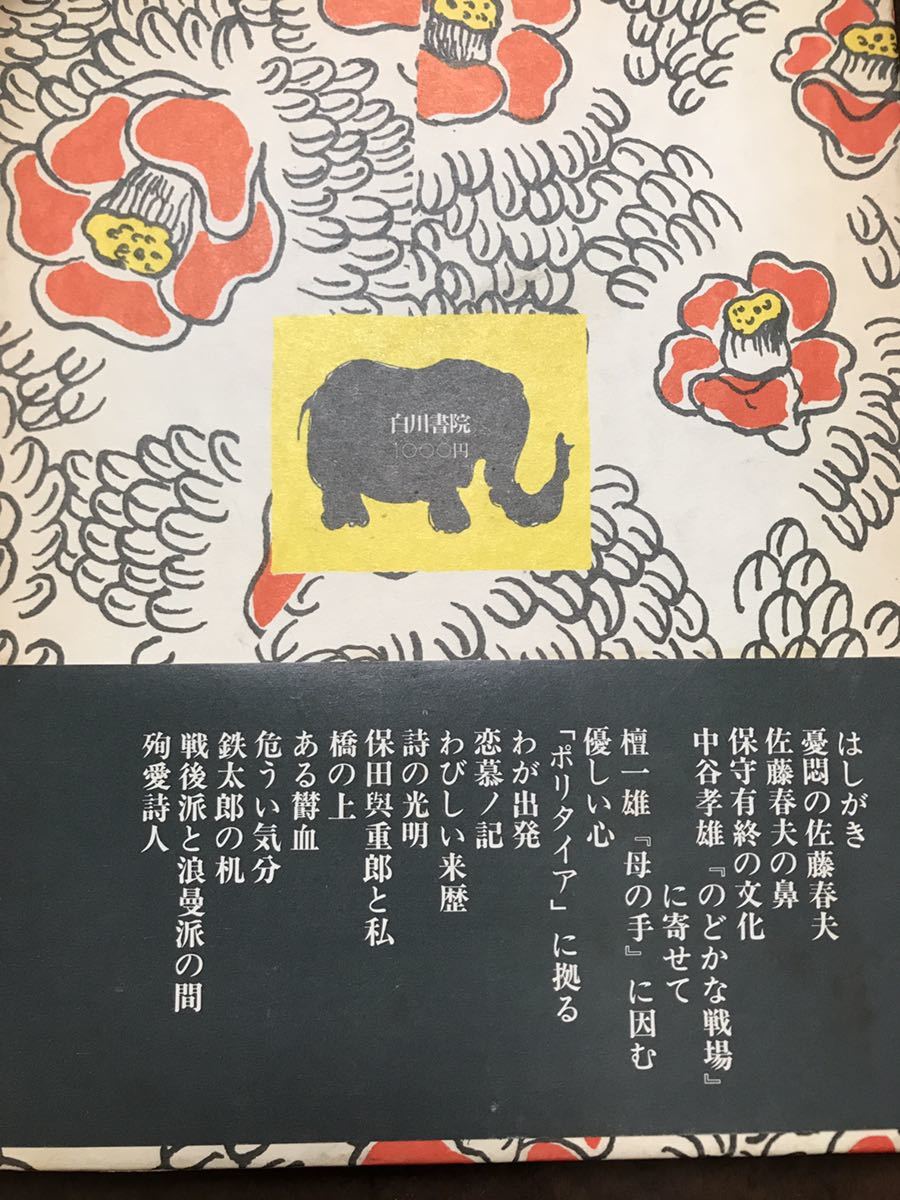 白川書院
1000円
はしがき
憂悶の佐藤春夫
佐藤春夫の鼻
保守有終の文化
中谷孝雄『のどかな戦場』
に寄せて
檀一雄『母の手』に因む
優しい心
「ポリタイア」に拠る
わが出発
恋慕ノ記
わびしい来歴
詩の光明
保田與重郎と私
橋の上
ある欝血
危うい気分
鉄太郎の机
戦後派と浪曼派の間
殉愛詩人